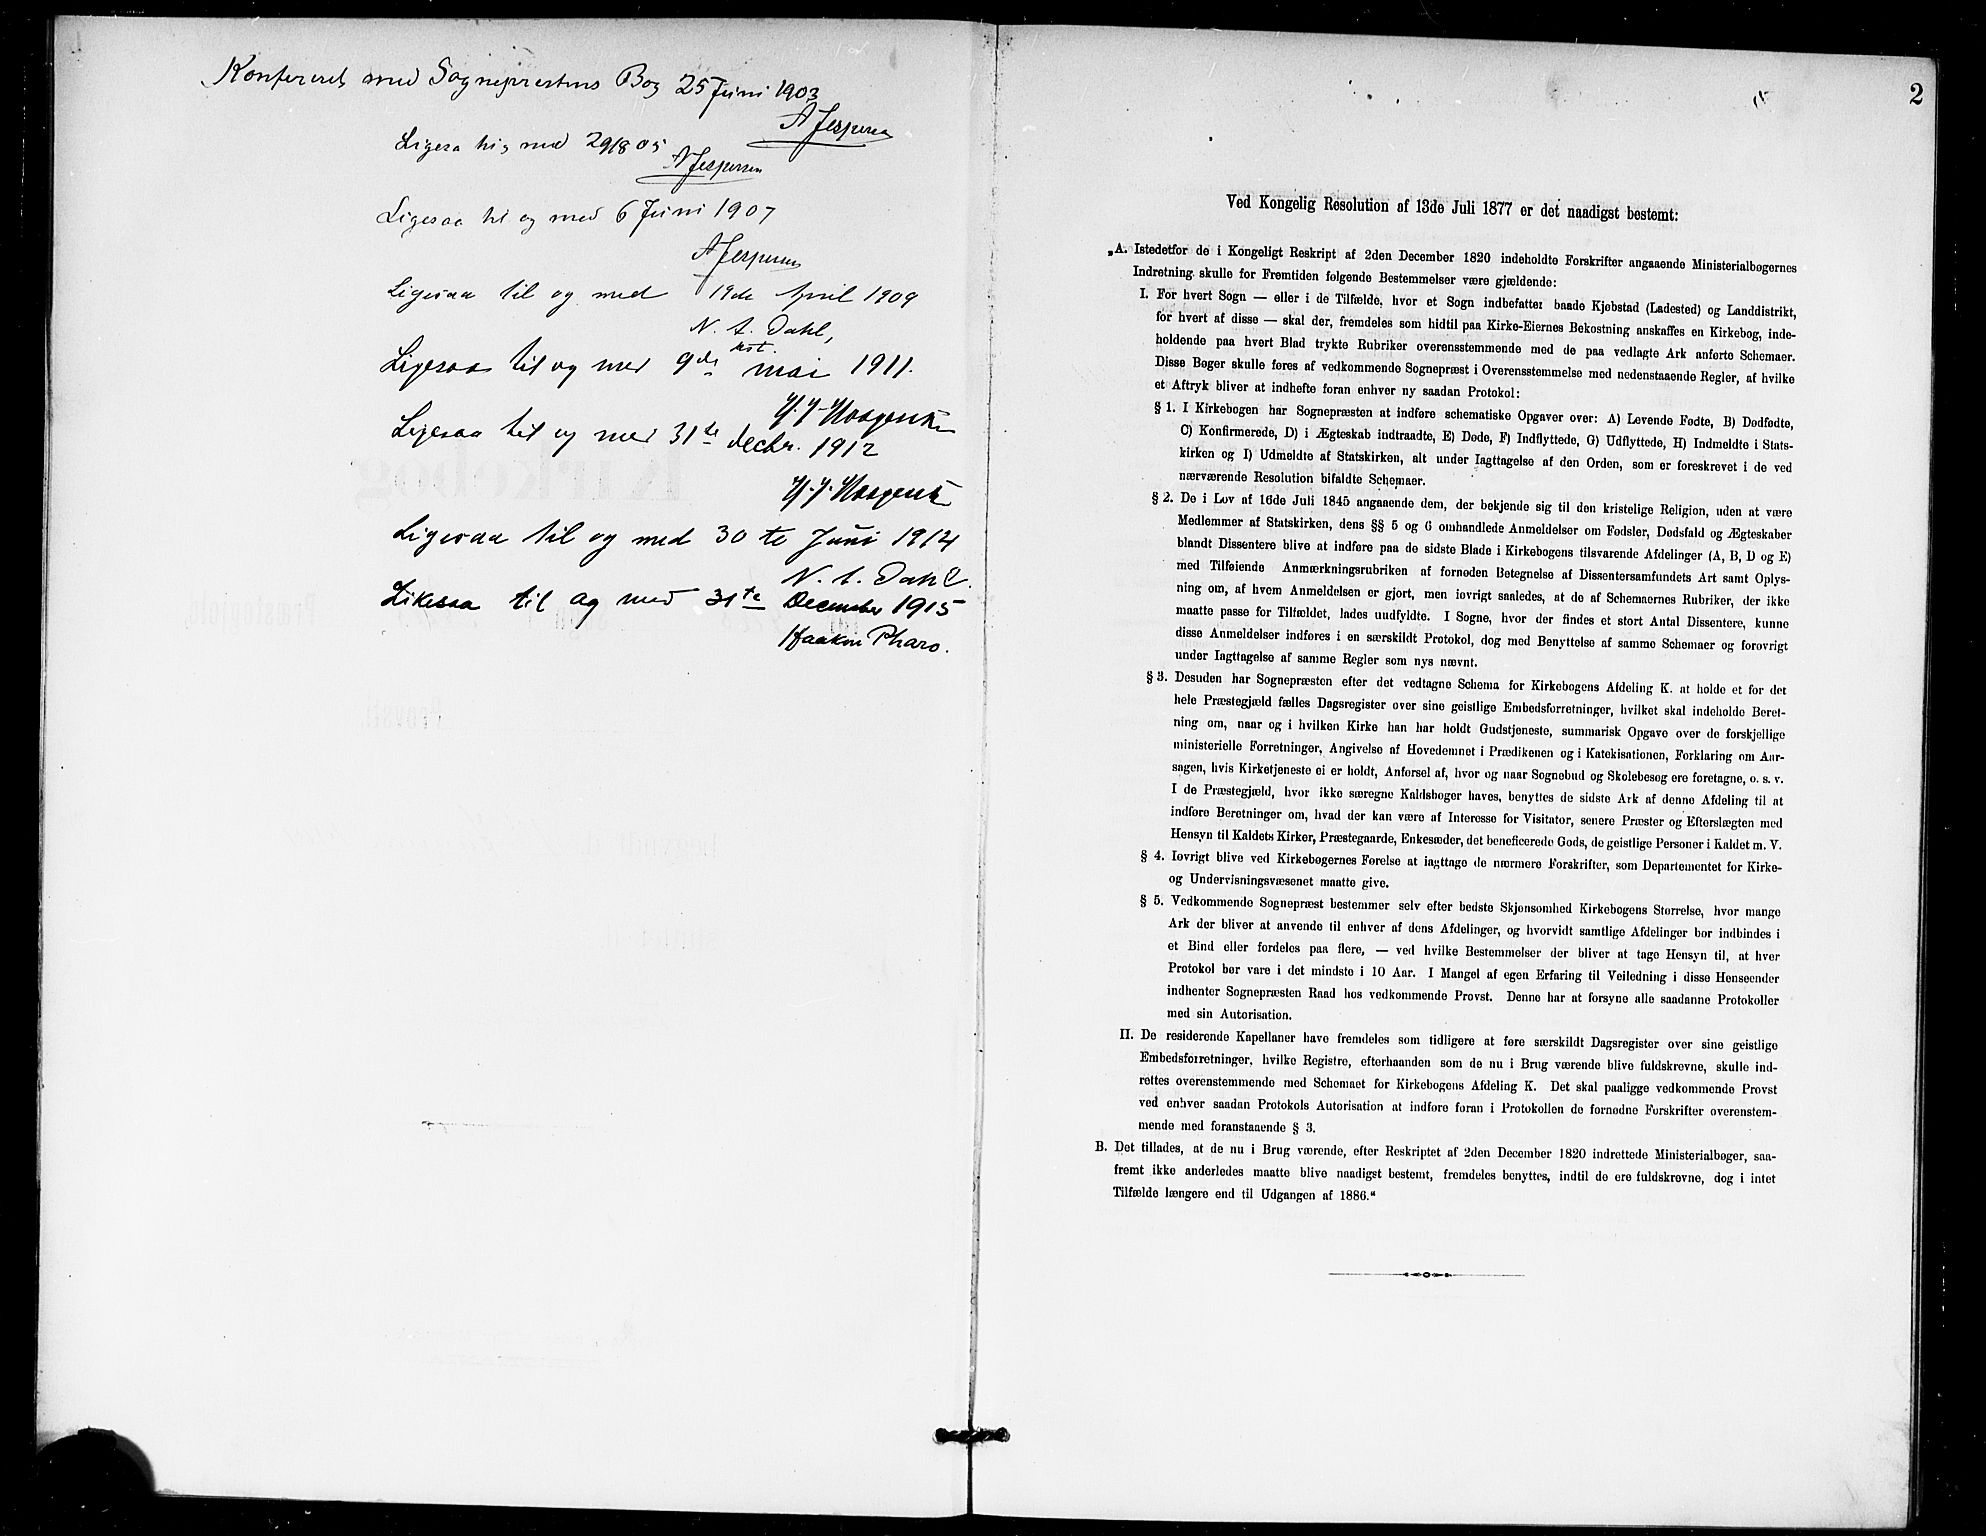 Konfereret med Sogneprestens Bog 25 Juni 1903
A Jespersen
Ligesa til og med 29/8 05
A Jespersen
Ligesaa til og med 6 Juni 1907
A Jespersen
Ligesaa til og med 19de April 1909
N. A. Dahl,
kst.
Ligesaa til og med 9de mai 1911.
Ligesaa til og med 31te decbr. 1912
Ligesaa til og med 30te Juni 1914
N. A. Dahl.
Likesaa til og med 31te December 1915
Haakon Pharo.
2
Ved Kongelig Resolution af 13de Juli 1877 er det naadigst bestemt:
„A. Istedetfor de i Kongeligt Reskript af 2den December 1820 indeholdte Forskrifter angaaende Ministerialbøgernes
Indretning skulle for Fremtiden følgende Bestemmelser være gjældende:
I. For hvert Sogn — eller i de Tilfælde, hvor et Sogn indbefatter baade Kjøbstad (Ladested) og Landdistrikt,
for hvert af disse — skal der, fremdeles som hidtil paa Kirke-Eiernes Bekostning anskaffes en Kirkebog, inde-
holdende paa hvert Blad trykte Rubriker overensstemmende med de paa vedlagte Ark anførte Schemaer.
Disse Bøger skulle føres af vedkommende Sognepræst i Overensstemmelse med nedenstaaende Regler, af hvilke
et Aftryk bliver at indhefte foran enhver ny saadan Protokol:
§ 1. I Kirkebogen har Sognepræsten at indføre schematiske Opgaver over: A) Levende Fødte, B) Dødfødte,
C) Konfirmerede, D) i Ægteskab indtraadte, E) Døde, F) Indflyttede, G) Udflyttede, H) Indmeldte i Stats-
kirken og I) Udmeldte af Statskirken, alt under Iagttagelse af den Orden, som er foreskrevet i de ved
nærværende Resolution bifaldte Schemaer.
§ 2. De i Lov af 16de Juli 1845 angaaende dem, der bekjende sig til den kristelige Religion, uden at være
Medlemmer af Statskirken, dens §§ 5 og 6 omhandlede Anmeldelser om Fødsler, Dødsfald og Ægteskaber
blandt Dissentere blive at indføre paa de sidste Blade i Kirkebogens tilsvarende Afdelinger (A, B, D og E)
med Tilføiende i Anmærkningsrubriken af fornøden Betegnelse af Dissentersamfundets Art samt Oplys-
ning om, af hvem Anmeldelsen er gjort, men iøvrigt saaledes, at de af Schemaernes Rubriker, der ikke
maatte passe for Tilfældet, lades uudfyldte. I Sogne, hvor der findes et stort Antal Dissentere, kunne
disse Anmeldelser indføres i en særskildt Protokol, dog med Benyttelse af samme Schemaer og forøvrigt
under Iagttagelse af samme Regler som nys nævnt.
§ 3. Desuden har Sognepræsten efter det vedtagne Schema for Kirkebogens Afdeling K. at holde et for det
hele Præstegjæld fælles Dagsregister over sine geistlige Embedsforretninger, hvilket skal indeholde Beret-
ning om, naar og i hvilken Kirke han har holdt Gudstjeneste, summarisk Opgave over de forskjellige
ministerielle Forretninger, Angivelse af Hovedemnet i Prædikenen og i Katekisationen, Forklaring om Aar-
sagen, hvis Kirketjeneste ei er holdt, Anførsel af, hvor og naar Sognebud og Skolebesøg ere foretagne, o. s. v.
I de Præstegjæld, hvor ikke særegne Kaldsbøger haves, benyttes de sidste Ark af denne Afdeling til at
indføre Beretninger om, hvad der kan være af Interesse for Visitator, senere Præster og Efterslægten med
Hensyn til Kaldets Kirker, Præstegaarde, Enkesæder, det beneficerede Gods, de geistlige Personer i Kaldet m. V.
§ 4. Iøvrigt blive ved Kirkebøgernes Førelse at iagttage de nærmere Forskrifter, som Departementet for Kirke-
og Undervisningsvæsenet maatte give.
§ 5. Vedkommende Sognepræst bestemmer selv efter bedste Skjønsomhed Kirkebogens Størrelse, hvor mange
Ark der bliver at anvende til enhver af dens Afdelinger, og hvorvidt samtlige Afdelinger bør indbindes i
et Bind eller fordeles paa flere, — ved hvilke Bestemmelser der bliver at tage Hensyn til, at hver
Protokol bør vare i det mindste i 10 Aar. I Mangel af egen Erfaring til Veiledning i disse Henseender
indhenter Sognepræsten Raad hos vedkommende Provst. Denne har at forsyne alle saadanne Protokoller
med sin Autorisation.
II. De residerende Kapellaner have fremdeles som tidligere at føre særskildt Dagsregister over sine geistlige
Embedsforretninger, hvilke Registre, efterhaanden som de nu i Brug værende blive fuldskrevne, skulle ind-
rettes overenstemmende med Schemaet for Kirkebogens Afdeling K. Det skal paaligge vedkommende Provst
ved enhver saadan Protokols Autorisation at indføre foran i Protokollen de fornødne Forskrifter overenstem-
mende med foranstaaende § 3.
B. Det tillades, at de nu i Brug værende, efter Reskriptet af 2den December 1820 indrettede Ministerialbøger, saa-
fremt ikke anderledes maatte blive naadigst bestemt, fremdeles benyttes, indtil de ere fuldskrevne, dog i intet
Tilfælde længere end til Udgangen af 1886.“